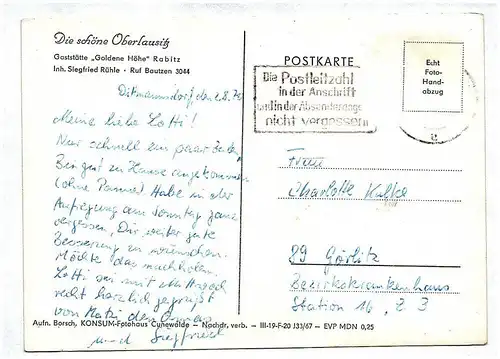 Die schöne Oberlausitz
Gaststätte „Goldene Höhe" Rabitz
Inh. Siegfried Rühle · Ruf Bautzen 3044
Dittmannsdorf, den 2.8.
Meine liebe Lotti!
Nur schnell ein paar Zeilen.
Bin gut zu Hause angekommen
(ohne Panne) Habe in der
Aufregung am Sonntag ganz
vergessen Dir weiter gute
Besserung zu wünschen.
Möchte das nachholen.
Lotti sei mit
recht herzlich gegrüßt
von
und Siegfried
POSTKARTE
Echt
Foto-
Hand-
abzug
Die Postleitzahl
in der Anschrift
und in der Absenderangabe
nicht vergessen
Frau
Charlotte Kulke
89 Görlitz
Bezirkskrankenhaus
Station 16, Z 3
Aufn. Borsch, KONSUM-Fotohaus Cunewalde - Nachdr. verb. - III-19-F-20 J31/67 - EVP MDN 0,25